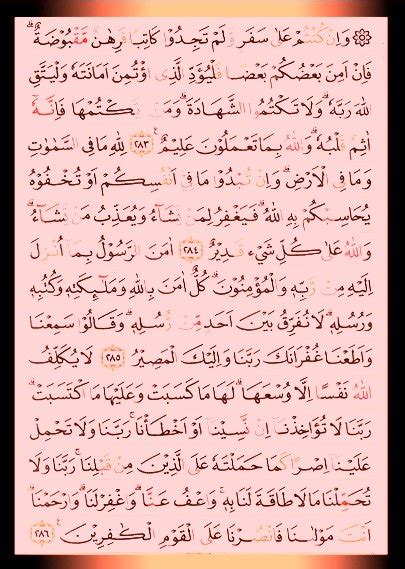 ۞ وَاِنْ كُنْتُمْ عَلٰى سَفَرٍ وَلَمْ تَجِدُوْا كَاتِبًا فَرِهٰنٌ مَّقْبُوْضَةٌ ۗ
فَاِنْ اَمِنَ بَعْضُكُمْ بَعْضًا فَلْيُؤَدِّ الَّذِى اؤْتُمِنَ اَمَانَتَهٗ وَلْيَتَّقِ
اللهَ رَبَّهٗ ۗ وَلَا تَكْتُمُوا الشَّهَادَةَ ۗ وَمَنْ يَّكْتُمْهَا فَاِنَّهٗٓ
اٰثِمٌ قَلْبُهٗ ۗ وَاللهُ بِمَا تَعْمَلُوْنَ عَلِيْمٌ ࣖ ٢٨٣ لِلّٰهِ مَا فِى السَّمٰوٰتِ
وَمَا فِى الْاَرْضِ ۗ وَاِنْ تُبْدُوْا مَا فِيْٓ اَنْفُسِكُمْ اَوْ تُخْفُوْهُ
يُحَاسِبْكُمْ بِهِ اللهُ ۗ فَيَغْفِرُ لِمَنْ يَّشَاۤءُ وَيُعَذِّبُ مَنْ يَّشَاۤءُ ۗ
وَاللهُ عَلٰى كُلِّ شَيْءٍ قَدِيْرٌ ٢٨٤ اٰمَنَ الرَّسُوْلُ بِمَآ اُنْزِلَ
اِلَيْهِ مِنْ رَّبِّهٖ وَالْمُؤْمِنُوْنَ ۗ كُلٌّ اٰمَنَ بِاللهِ وَمَلٰۤىِٕكَتِهٖ وَكُتُبِهٖ
وَرُسُلِهٖ ۗ لَا نُفَرِّقُ بَيْنَ اَحَدٍ مِّنْ رُّسُلِهٖ ۗ وَقَالُوْا سَمِعْنَا
وَاَطَعْنَا غُفْرَانَكَ رَبَّنَا وَاِلَيْكَ الْمَصِيْرُ ٢٨٥ لَا يُكَلِّفُ
اللهُ نَفْسًا اِلَّا وُسْعَهَا ۗ لَهَا مَا كَسَبَتْ وَعَلَيْهَا مَا اكْتَسَبَتْ ۗ
رَبَّنَا لَا تُؤَاخِذْنَآ اِنْ نَّسِيْنَآ اَوْ اَخْطَأْنَا ۚ رَبَّنَا وَلَا تَحْمِلْ
عَلَيْنَآ اِصْرًا كَمَا حَمَلْتَهٗ عَلَى الَّذِيْنَ مِنْ قَبْلِنَا ۚ رَبَّنَا وَلَا
تُحَمِّلْنَا مَا لَا طَاقَةَ لَنَا بِهٖ ۚ وَاعْفُ عَنَّا ۗ وَاغْفِرْ لَنَا ۗ وَارْحَمْنَا ۗ
اَنْتَ مَوْلٰىنَا فَانْصُرْنَا عَلَى الْقَوْمِ الْكٰفِرِيْنَ ࣖ ٢٨٦